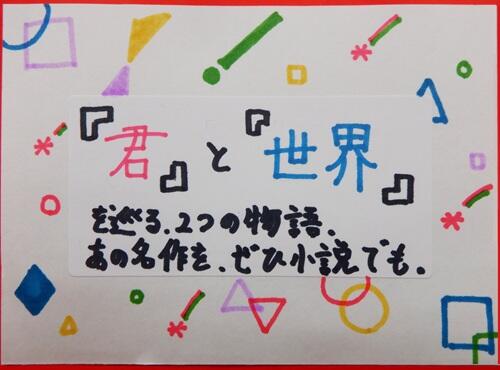 『君』と『世界』
を巡る、2つの物語、
あの名作を、ぜひ小説でも。